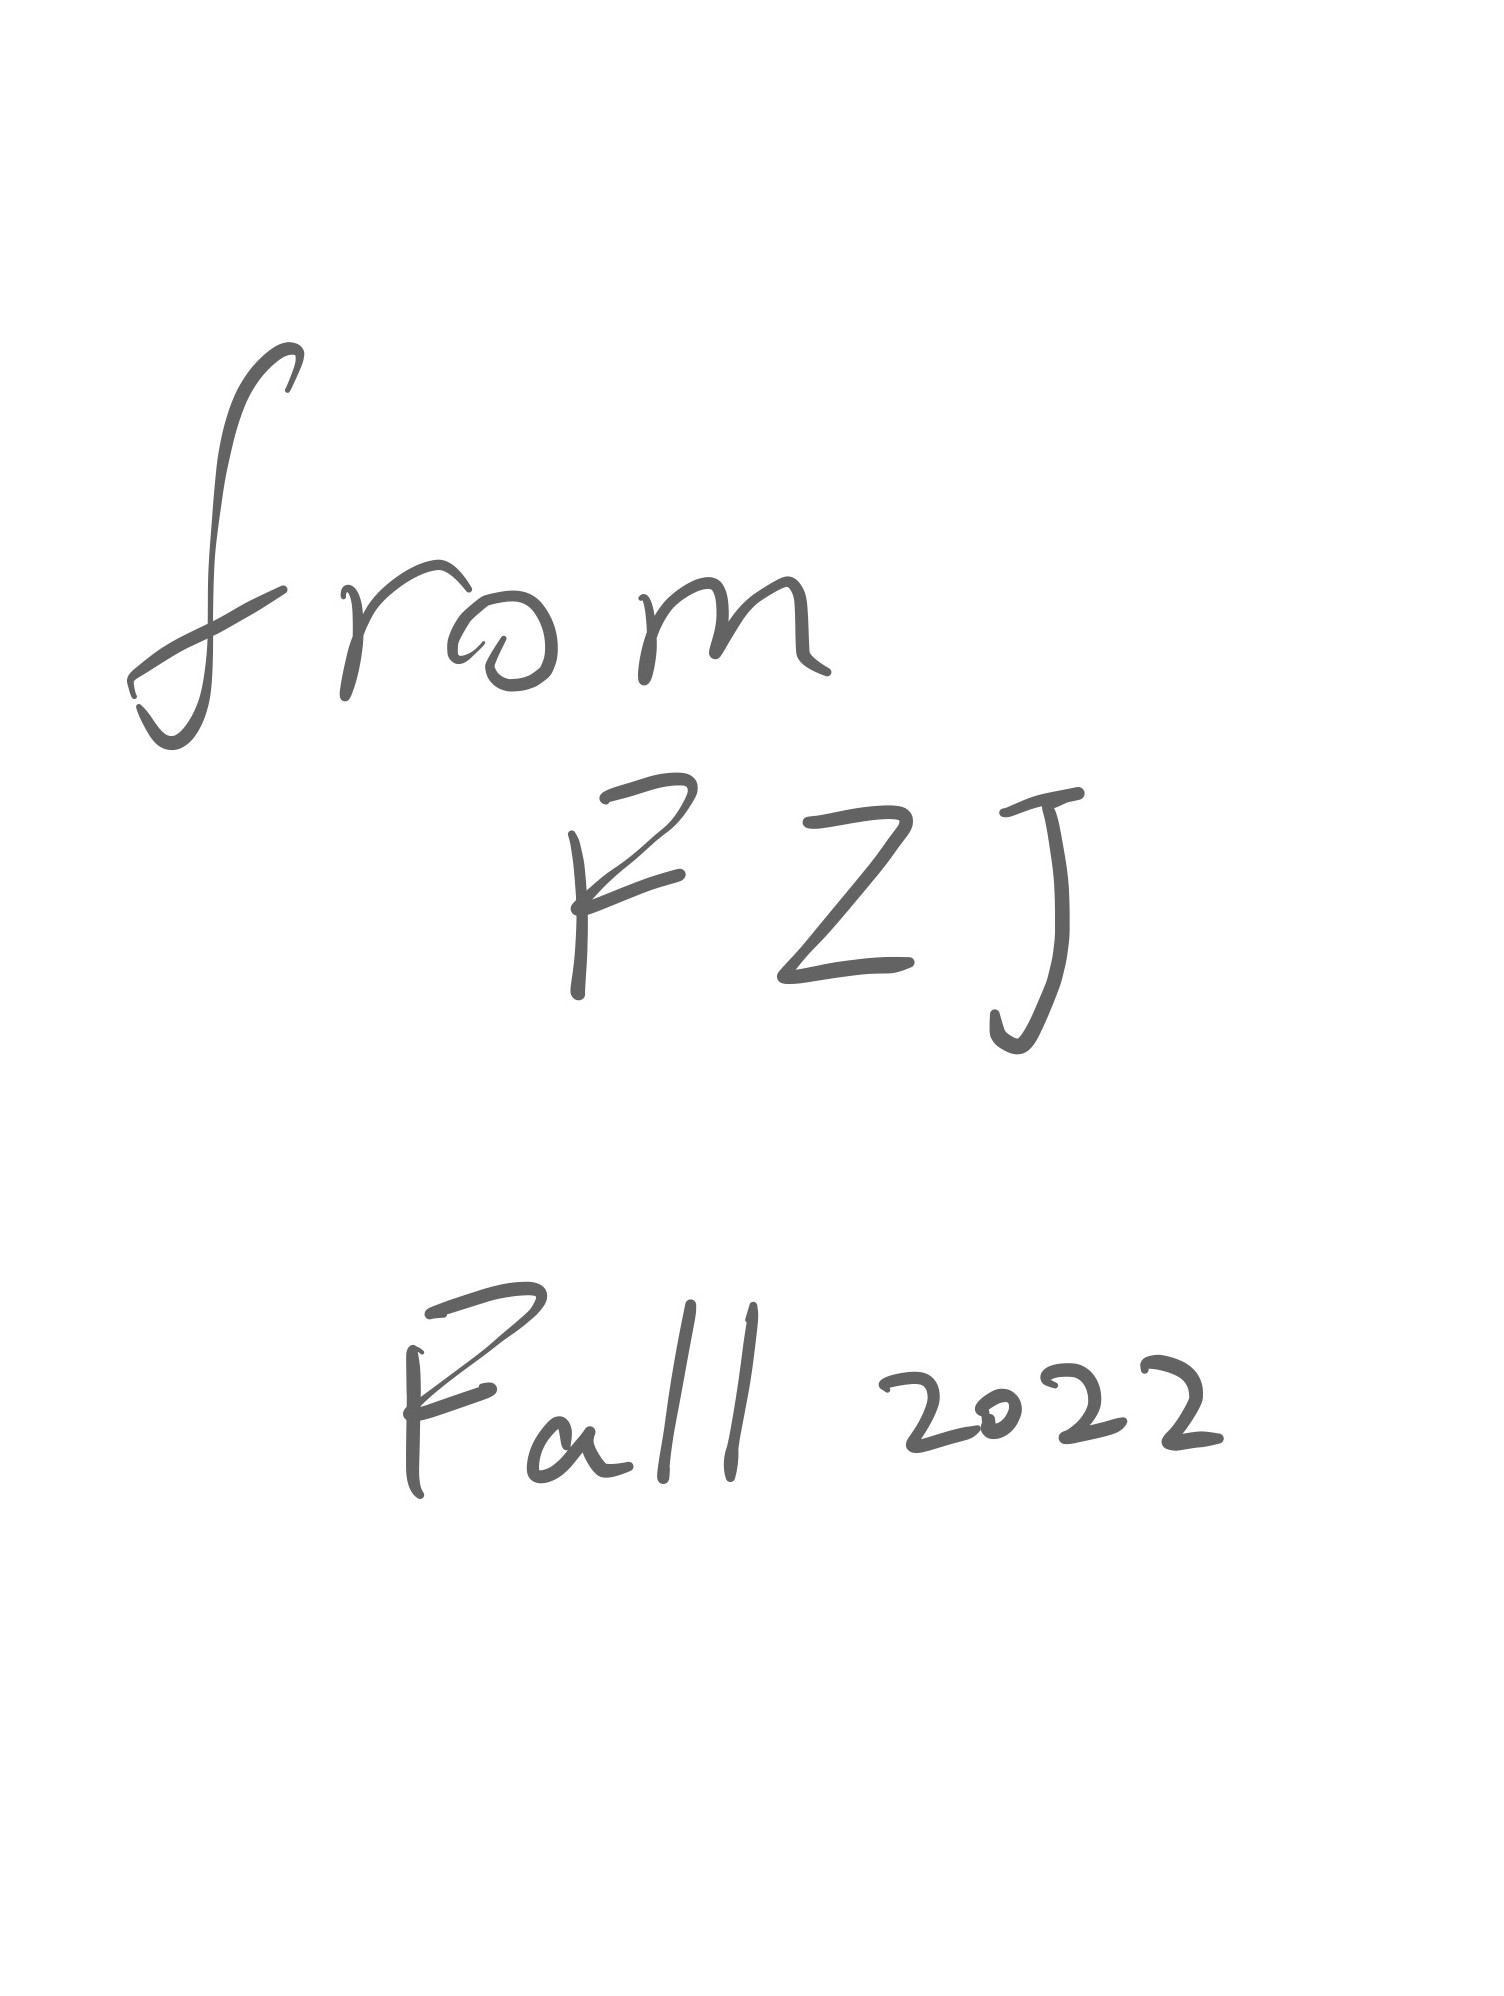 from
FZJ
Fall 2022